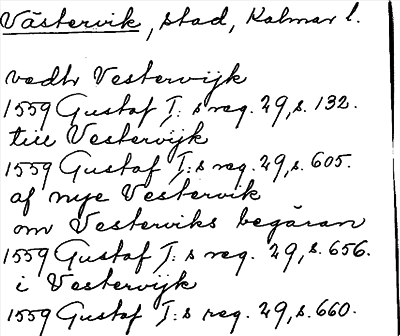 Västervik, stad, Kalmar l.
vedh Vesterwijk
1559 Gustaf I:s reg. 29, s. 132.
till Vesterwijk
1559 Gustaf I:s reg. 29, s. 605.
af nye Vestervik
om Vesterviks begäran
1559 Gustaf I:s reg. 29, s. 656.
i Vesterwijk
1559 Gustaf I:s reg. 29, s. 660.